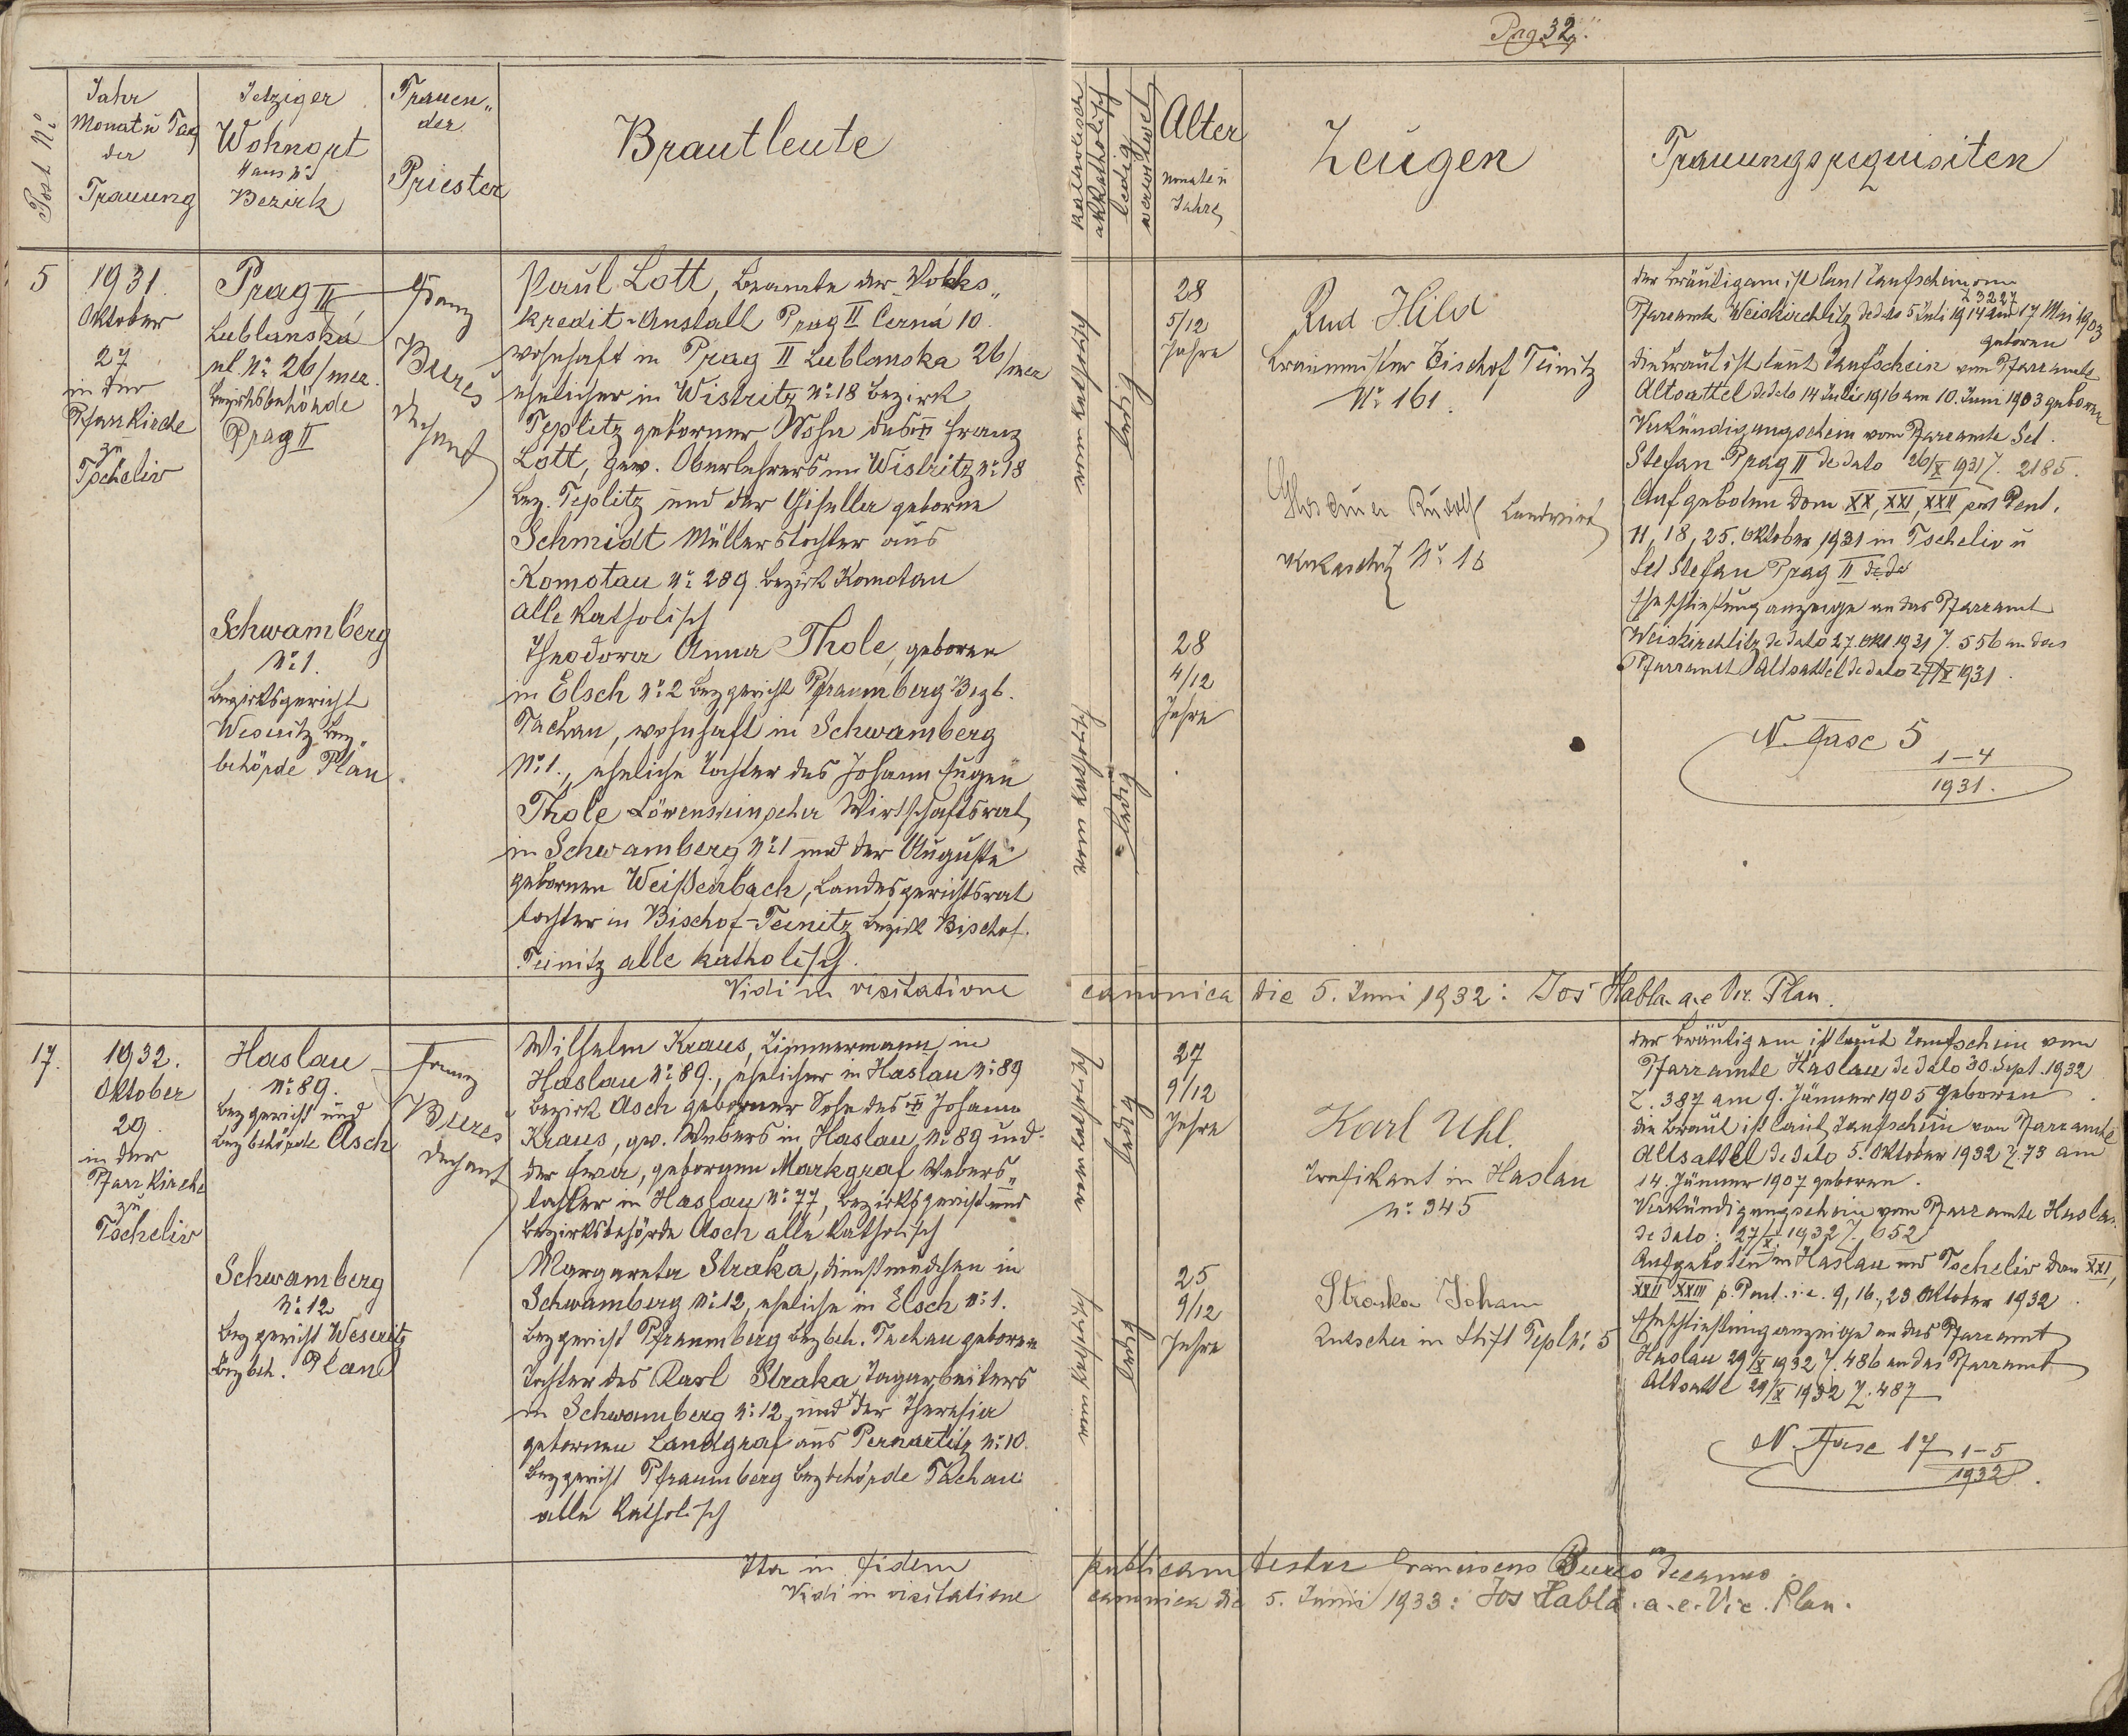 Pag. 32.
Post. No
Jahr
Monat u Tag
der
Trauung
Jetziger
Wohnort
Haus No
Bezirk
Trauen„
der
Priester
Brautleute
katholisch
akatholisch
ledig
verwitwet
Alter
Monate u
Jahre
Zeugen
Trauungsrequisiten
5
1931.
Oktober
27
in der
Pfarrkirche
zu
Tscheliv
Prag II
Lublanská
ul. No 26/mez.
Bezirksbehörde
Prag II
Franz
Bureš
Dechant
Paul Lott, Beamte der Volks„
kredit-Anstalt Prag II Cerná 10.
wohnhaft in Prag II Lublanska 26/mez
ehelicher in Wistritz No 18 Bezirk
Teplitz geborner Sohn des Franz
Lott, gew. Oberlehrers in Wistritz No 18
Bez. Teplitz und der Gisella geborne
Schmidt Müllerstochter aus
Komotau No 289 Bezirk Komotau
alle katholisch
Schwamberg
No 1.
Bezirksgericht
Weseritz Bez„
behörde Plan.
Theodora Anna Thole, geboren
in Elsch No 2 Bezgericht Pfraumberg Bezb.
Tachau, wohnhaft in Schwamberg
No 1., eheliche Tochter des Johann Eugen
Thole Löwensteinscher Wirtschaftsrat
in Schwamberg No 1 und der Auguste
gebornen Weißenbach, Landesgerichtsrat
tochter in Bischof-Teinitz Bezirk Bischof.
Teinitz alle katholisch.
röm katholisch
ledig
28
5/12
Jahre
röm katholisch
ledig
28
4/12
Jahre
Rud Hild
Braumeister Bischof Teinitz
No 161.
Rudolf Landwirt
No 16
der Bräutigam ist laut Taufschein vom
Z 3227
Pfarramte Weiskirchlitz de dato 5 Juli 1914 am 17 Mai 1903
geboren
die Braut ist laut Taufschein vom Pfarramte
Altsattel de dato 14 Juli 1916 am 10. Juni 1903 geboren
Verkündigungschein vom Pfarramte Sct.
Stefan Prag II de dato 26/X 1931 Z. 2185.
Aufgeboten Dom XX, XXI, XXII post Pent.
11, 18, 25. Oktober 1931 in Tscheliv u
Sct Stefan Prag II
Eheschließung anzeige an das Pfarramt
Weiskirchlitz de dato 27. Okt 1931 Z. 556 an das
Pfarramt Altsattel de dato 27/X 1931.
N. Fasc 5 1-4
1931.
Vidi in visitatione canonica die 5. Juni 1932: Jos Habla a.e Vic. Plan.
17.
1932.
Oktober
29.
in der
Pfarrkirche
zu
Tscheliv
Haslau
No 89.
Bezgericht und
Bezbehörde Asch
Franz
Bureš
Dechant
Wilhelm Kraus, Zimmermann in
Haslau No 89., ehelicher in Haslau No 89
Bezirk Asch geborner Sohn des Johann
Kraus, gw. Webers in Haslau, No 89 und
der Eva, gebornen Markgraf Webers„
tochter in Haslau No 77, Bezirksgericht und
Bezirksbehörde Asch alle katholisch
Schwamberg
No 12
Bezgericht Weseritz
Bezbeh. Plan
Margareta Straka, Dienstmädchen in
Schwamberg No 12, eheliche in Elsch No 1.
Bezgericht Pfraumberg Bezbeh. Tachau geboren
Tochter des Karl Straka Tagarbeiters
in Schwamberg No 12, und der Theresia
gebornen Landgraf aus Pernartitz No 10.
Bezgericht Pfraumberg Bezbehörde Tachau
alle katholisch
röm katholisch
ledig
27
9/12
Jahre
röm katholisch
ledig
25
9/12
Jahre
Karl Uhl.
Trafikant in Haslau
No 345
Straka Johann
Kutscher in Stift Tepl No 5
der Bräutigam ist laut Taufschein vom
Pfarramte Haslau de dato 30. Sept. 1932
Z. 387 am 9. Jänner 1905 geboren
die Braut ist laut Taufschein von Pfarramte
Altsattel de dato 5. Oktober 1932 Z. 73 am
14. Jänner 1907 geboren.
Verkündigungschein vom Pfarramte Haslau
de dato: 27/X 1932 Z. 652
Aufgeboten in Haslau und Tscheliv Dom XXI,
XXII XXIII p. Pent. i.e. 9, 16., 23 Oktober 1932.
Eheschließung anzeige an das Pfarramt
Haslau 29/X 1932 Z. 486 an das Pfarramt
Altsattl 29/X 1932 Z. 487
N. Fasc 17 1-5
1932.
Ita in fidem publicam testor Franciscus Bureš Decanus
Vidi in visitatione canonica die 5. Junii 1933: Jos Habla. a.e. Vic. Plan.